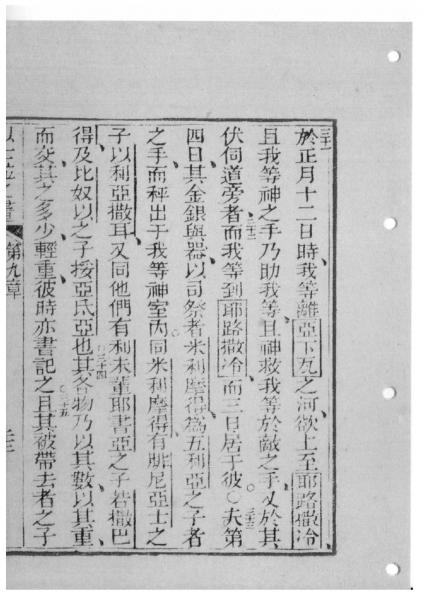 三十一
於正月十二日時、我等離亞下瓦之河欲上至耶路撒冷、
且我等神之手乃助我等、且神救我等於敵之手、又於其
伏伺道旁者三十二而我等到耶路撒冷而三日居于彼○三十三夫第
四日其金銀與器以司祭者米利摩得為五利亞之子者
之手而秤出于我等神室內同米利摩得有腓尼亞士之
子以利亞撒耳、又同他們有利未輩耶書亞之子若撒巴
得及比奴以之子挼亞氐亞也三十四其各物乃以其數以其重、
而交其之多少輕重彼時亦書記之三十五且其被帶去者之子
第九章